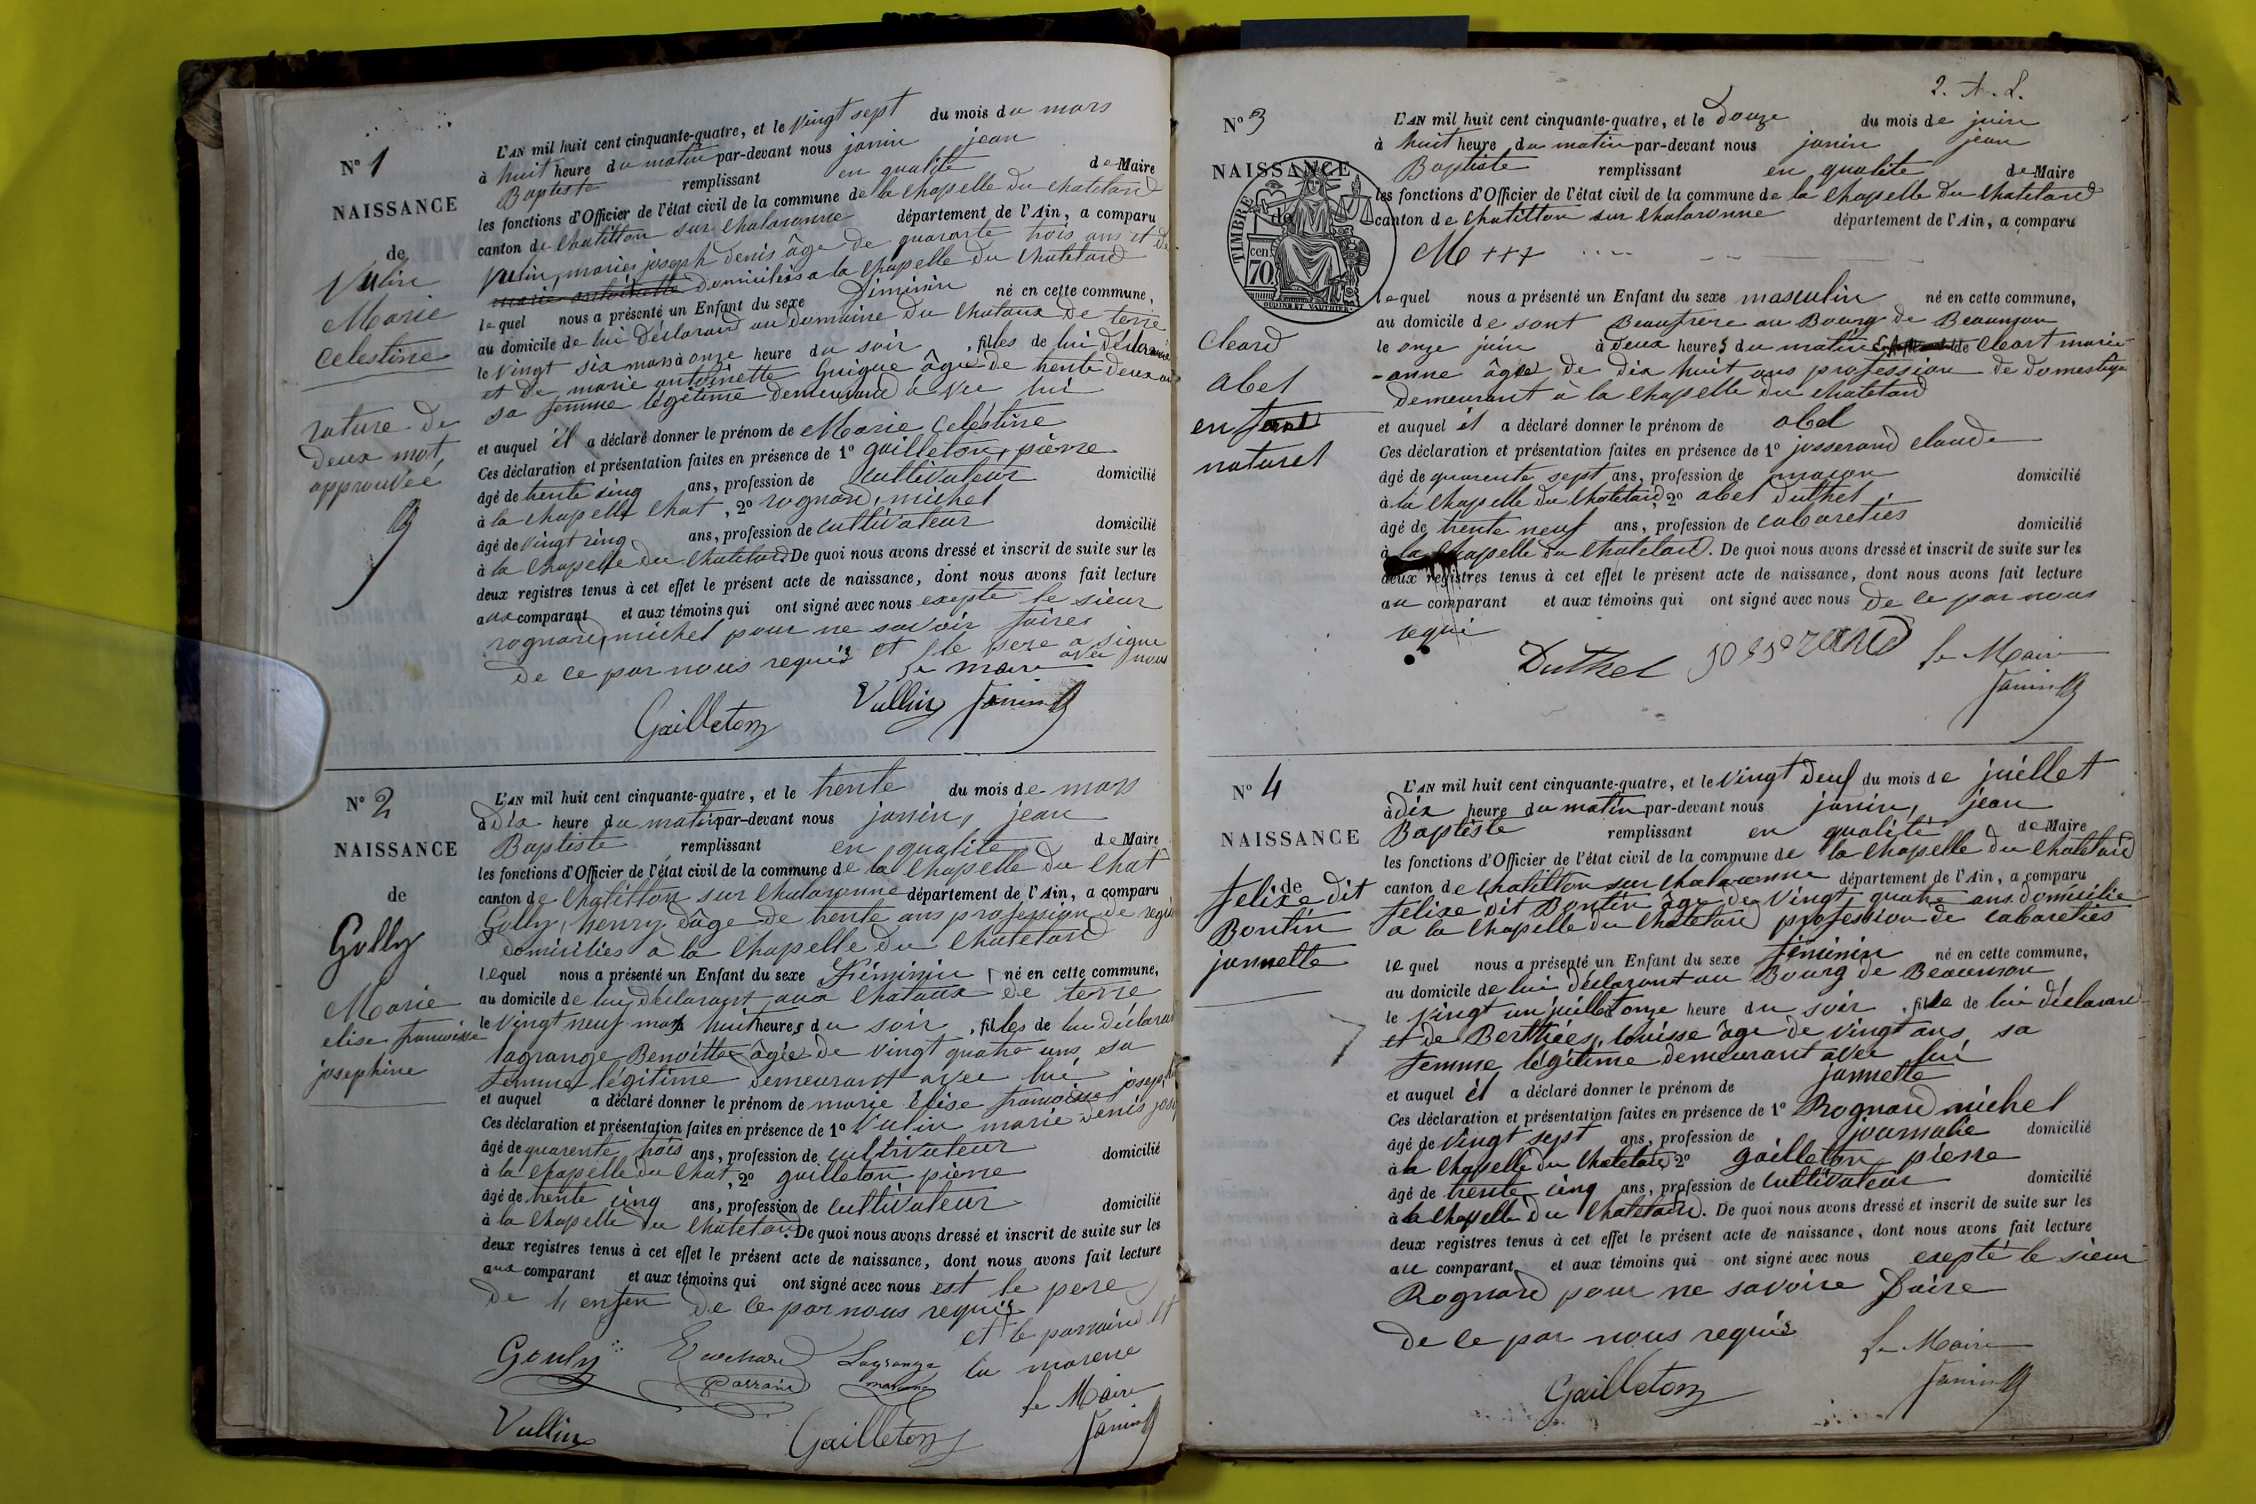 N° 1
NAISSANCE
de
Vulin
Marie
Celestine
rature de
deux mot
approuvéé
L'AN mil huit cent cinquante-quatre, et le vingt sept du mois du mars
à huit heure du matin par-devant nous janin jean
Baptiste remplissant en qualité de Maire
les fonctions d'Officier de l'état civil de la commune de la chapelle du chatelard
canton de Chatillon sur Chalaronne département de l'Ain, a comparu
Vulin, marie joseph denis âge de quarante trois ans et de
domiciliés a la chapelle du Chatelard
lequel nous a présenté un Enfant du sexe féminin né en cette commune,
au domicile de lui déclarand au domaine du Chataux de terre
le vingt six mars à onze heure du soir, filles de lui déclarand
et de marie antoinette Guigue âge de trente deux ans
sa femme légitime demeurand avec lui
et auquel il a déclaré donner le prénom de Marie Celéstine
Ces déclaration et présentation faites en présence de 1° gailleton, pierre
âgé de trente sinq ans, profession de cultivateur domicilié
à la chapelle Chat, 2° rognard, michel
âgé de vingt sinq ans, profession de cultivateur domicilié
à la Chapelle du Chatelard. De quoi nous avons dressé et inscrit de suite sur les
deux registres tenus à cet effet le présent acte de naissance, dont nous avons fait lecture
aux comparant et aux témoins qui ont signé avec nous exepte le sieur
rognard, michel pour ne savoir faire
de ce par nous requis et le pere a signe
avec nous
Le maire
Gailleton Vullin Janin
N° 2
NAISSANCE
de
Golly
Marie
elise francoisse
josephine
L'AN mil huit cent cinquante-quatre, et le trente du mois de mars
à Dix heure du matin par-devant nous janin, jean
Baptiste remplissant en qualite de Maire
les fonctions d'Officier de l'état civil de la commune de la Chapelle du Chat
canton de Chatillon sur Chalaronne département de l'Ain, a comparu
Golly, henry, dâge de trente ans profession de
domiciliés à la Chapelle du Chatelard
lequel nous a présenté un Enfant du sexe Féminin né en cette commune,
au domicile de lui déclarant aux Chataux de terre
le vingt neuf mars huit heures du soir, filles de lui déclarand
lagrange Benoitte âgée de vingt quatre ans, sa
femme légitime demeurant avec lui
et auquel a déclaré donner le prénom de marie elise francoisse
Ces déclaration et présentation faites en présence de 1° Vulin marie denis
âgé de quarente trois ans, profession de cultivateur domicilié
à la Chapelle du Chat, 2° gailleton pierre
âgé de trente cinq ans, profession de cultivateur domicilié
à la Chapelle du Chatelard. De quoi nous avons dressé et inscrit de suite sur les
deux registres tenus à cet effet le présent acte de naissance, dont nous avons fait lecture
aux comparant et aux témoins qui ont signé avec nous est le pere
de de ce par nous requis
et le parraind et
la marene
Gouly Parraind Lagrange
Le Maire
Vullin Gailleton Janin
2. A. L.
N° 3
NAISSANCE
de
TIMBRE
cen
70
Cleard
Abel
enfant
naturel
L'AN mil huit cent cinquante-quatre, et le Douze du mois de juin
à huit heure du matin par-devant nous janin jean
Baptiste remplissant en qualite de Maire
les fonctions d'Officier de l'état civil de la commune de la Chapelle du Chatelard
canton de Chatillon sur Chalaronne département de l'Ain, a comparu
M +++
lequel nous a présenté un Enfant du sexe masculin né en cette commune,
au domicile de sont Beaufrere au Bourg de Beaumon
le onze juin à deux heures du matin de Cleart marie-
-anne âgée de dix huit ans profession de domestique
demeurant à la Chapelle du Chatelard
et auquel il a déclaré donner le prénom de abel
Ces déclaration et présentation faites en présence de 1° josserand claude
âgé de quarente sept ans, profession de maçon domicilié
à la Chapelle du Chatelard, 2° abel duthel
âgé de trente neuf ans, profession de cabareties domicilié
à la Chapelle du Chatelard. De quoi nous avons dressé et inscrit de suite sur les
deux registres tenus à cet effet le présent acte de naissance, dont nous avons fait lecture
au comparant et aux témoins qui ont signé avec nous de ce par nous
requi
Duthel josserand Le Maire
Janin
N° 4
NAISSANCE
de
felixe dit
Bontin
jannette
L'AN mil huit cent cinquante-quatre, et le vingt deuf du mois de juillet
à Dix heure du matin par-devant nous janin, jean
Baptiste remplissant en qualité de Maire
les fonctions d'Officier de l'état civil de la commune de la Chapelle du Chatelard
canton de Chatillon sur Chalaronne département de l'Ain, a comparu
felixe dit Bontin âge de vingt quatre ans domicilié
a la Chapelle du Chatelard profession de cabareties
le quel nous a présenté un Enfant du sexe féminin né en cette commune,
au domicile de lui déclarant au Bourg de Beaumon
le vingt un juillet onze heure du soir, fille de lui déclarand
et de Berthiées, louisse âge de vingt ans, sa
femme légitime demeurant avec lui
et auquel il a déclaré donner le prénom de jannette
Ces déclaration et présentation faites en présence de 1° Rognard michel
âgé de vingt sept ans, profession de journalie domicilié
à la Chapelle du Chatelard 2° gailleton pierre
âgé de trente cinq ans, profession de cultivateur domicilié
à la Chapelle du Chatelard. De quoi nous avons dressé et inscrit de suite sur les
deux registres tenus à cet effet le présent acte de naissance, dont nous avons fait lecture
au comparant et aux témoins qui ont signé avec nous exepté le sieur
Rognard pour ne savoire faire
de ce par nous requis
Le Maire
Gailleton Janin